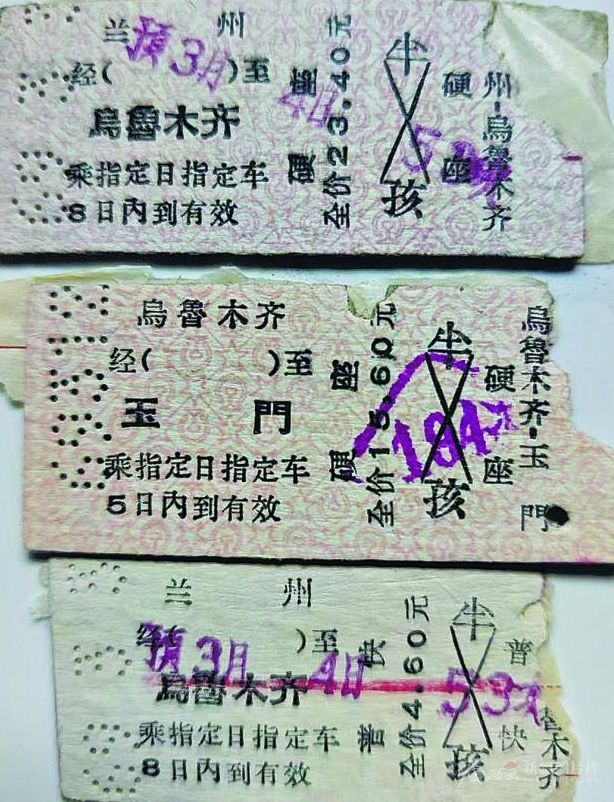 兰州
预3月4日53次
经( )至
烏魯木齐
乘指定日指定车
8日内到有效
硬座
全价23.40元
半
孩
硬座
州-烏魯木齐
烏魯木齐
经( )至
玉門
乘指定日指定车
5日内到有效
硬座
全价15.60元
半
184次
孩
硬座
烏魯木齐-玉門
兰州
经( )至
预3月4日53次
烏魯木齐
乘指定日指定车
8日内到有效
普快
全价4.60元
半
孩
普快
魯木齐